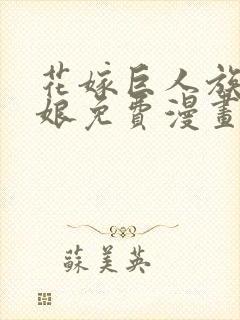 花嫁巨人族
娘免費漫畫
蘇美英